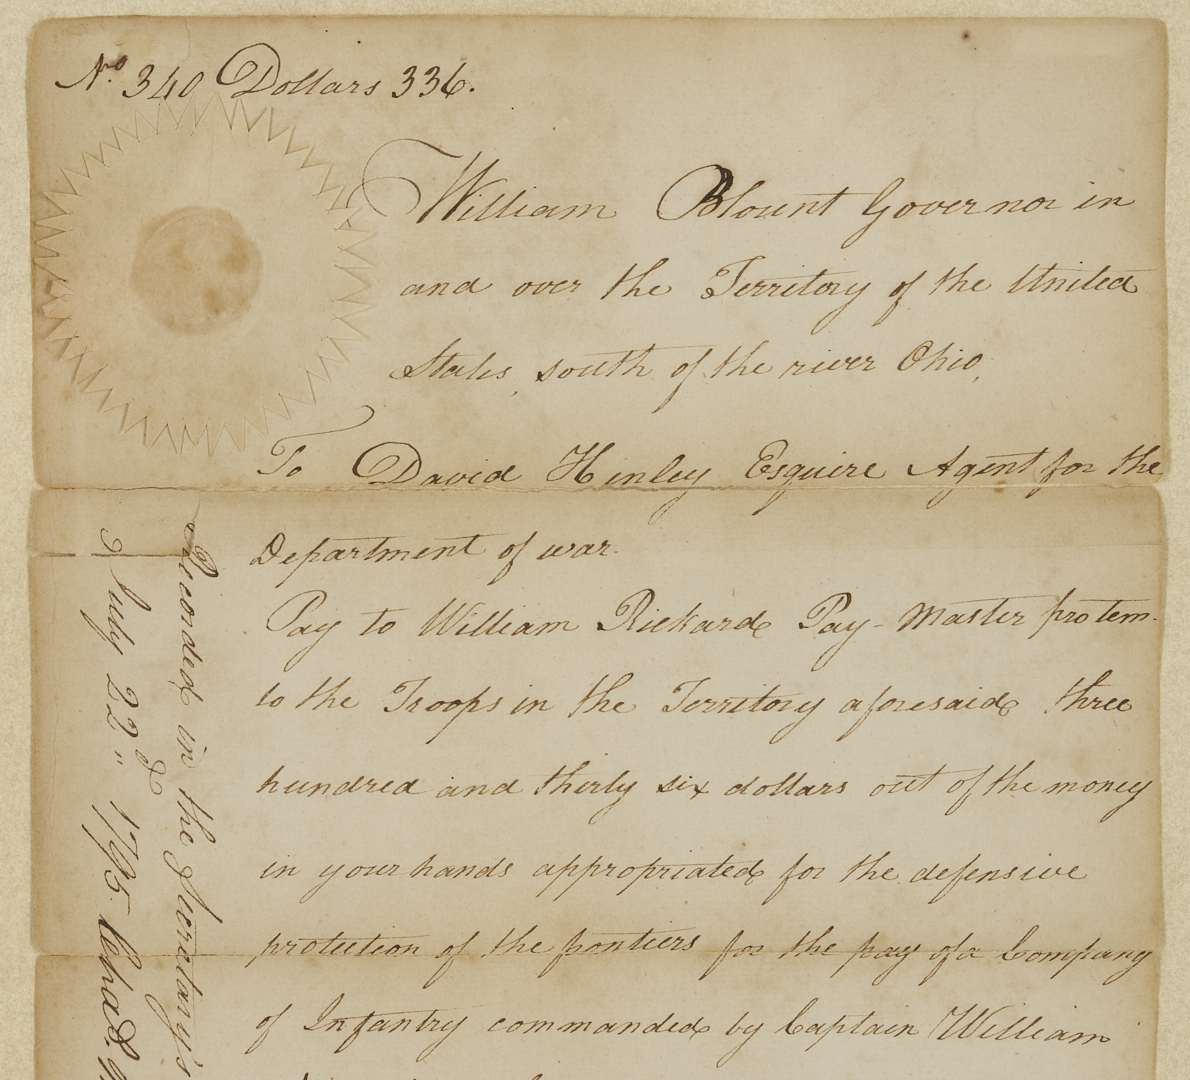 No. 340 Dollars 336.
William Blount Governor in
and over the Territory of the United
States, south of the river Ohio,
To David Henley Esquire Agent for the
Department of war.
Pay to William Rickard Pay-Master protem.
to the Troops in the Territory aforesaid three
hundred and thirty six dollars out of the money
in your hands appropriated for the defensive
protection of the frontiers for the pay of a Company
of Infantry commanded by Captain William
Recorded in the Secretary's
July 22d 1795. Chas.